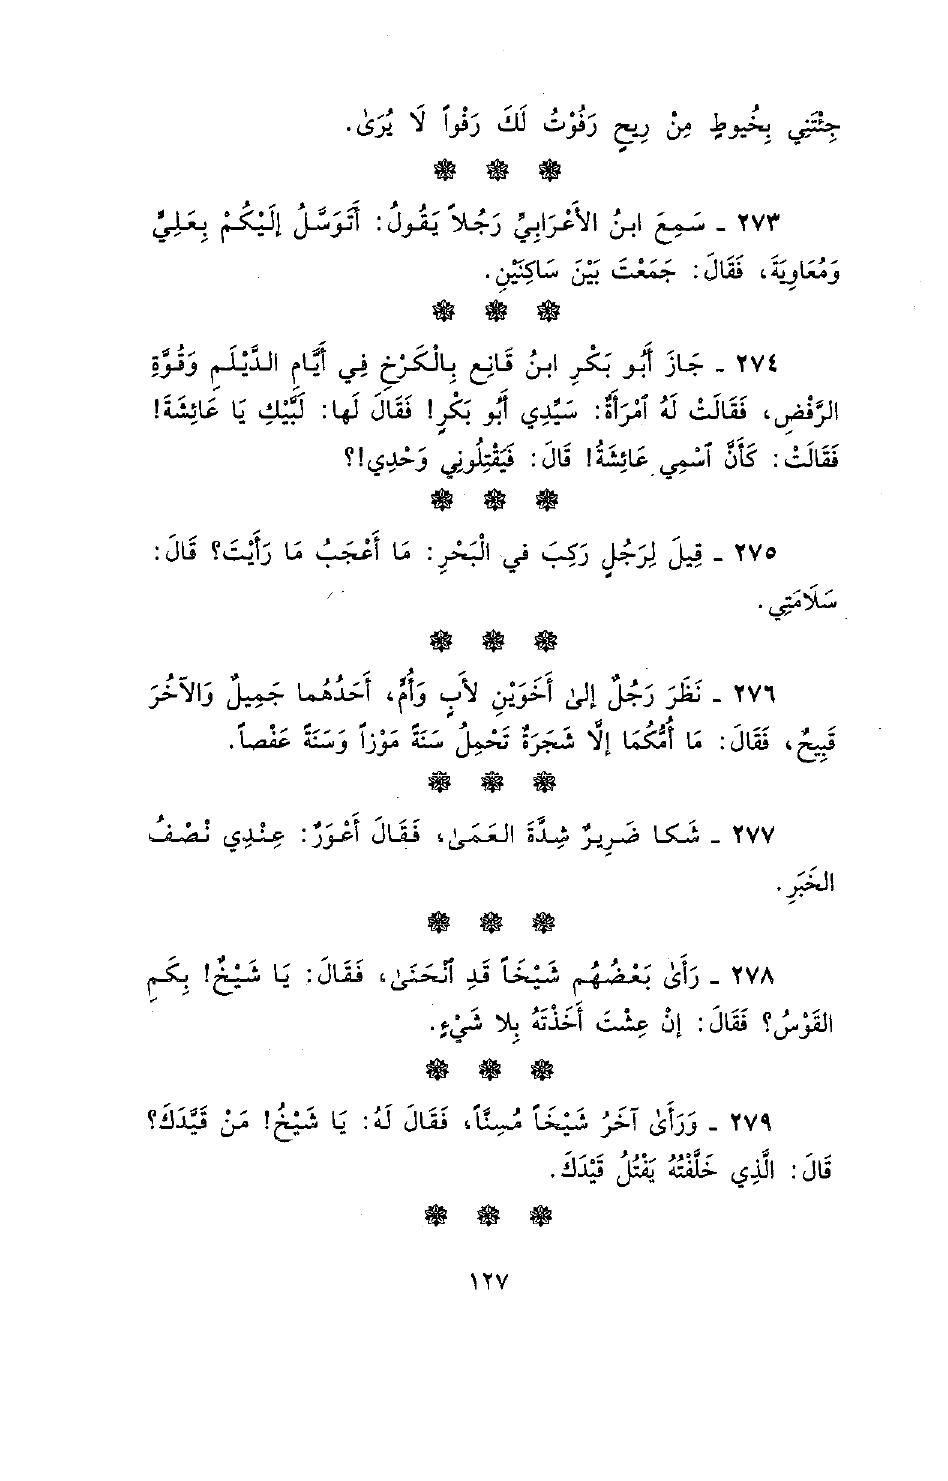 جِئْتَنِي بِخُيوطٍ مِنْ رِيحٍ رَفُوْتُ لَكَ رَفْواً لَا يُرَىٰ.
٢٧٣ - سَمِعَ ابنُ الأَعْرَابِيِّ رَجُلاً يَقُولُ: أَتَوَسَّلُ إلَيْكُمْ بِعَلِيٍّ
وَمُعَاوِيَةَ، فَقَالَ: جَمَعْتَ بَيْنَ سَاكِنَيْنِ.
٢٧٤ - جَازَ أَبُو بَكْرِ ابنُ قَانِعٍ بِالْكَرْخِ فِي أَيَّامِ الدَّيْلَمِ وَقُوَّةِ
الرَّفْضِ، فَقَالَتْ لَهُ ٱمْرَأَةٌ: سَيِّدِي أَبُو بَكْرٍ! فَقَالَ لَها: لَبَّيْكِ يَا عَائِشَةُ!
فَقَالَتْ: كَأَنَّ ٱسْمِي عَائِشَةُ! قَالَ: فَيَقْتِلُونِي وَحْدِي!؟
٢٧٥ - قِيلَ لِرَجُلٍ رَكِبَ في الْبَحْرِ: مَا أَعْجَبُ مَا رَأَيْتَ؟ قَالَ:
سَلَامَتِي.
٢٧٦ - نَظَرَ رَجُلٌ إلىٰ أَخَوَيْنِ لأَبٍ وَأُمٍّ، أَحَدُهُما جَمِيلٌ وَالآخُرَ
قَبِيحٌ، فَقَالَ: مَا أُمُّكُمَا إلَّا شَجَرَةٌ تَحْمِلُ سَنَةً مَوْزاً وَسَنَةً عَفْصاً.
٢٧٧ - شَكا ضَرِيرٌ شِدَّةَ العَمَىٰ، فَقَالَ أَعْوَرٌ: عِنْدِي نْصْفُ
الخَبَرِ.
٢٧٨ - رَأَىٰ بَعْضُهُم شَيْخَاً قَدِ ٱنْحَنَىٰ، فَقَالَ: يَا شَيْخُ! بِكَمِ
القَوْسُ؟ فَقَالَ: إنْ عِشْتَ أَخَذْتَهُ بِلا شَيْءٍ.
٢٧٩ - وَرَأَىٰ آخَرُ شَيْخَاً مُسِنَّاً، فَقَالَ لَهُ: يَا شَيْخُ! مَنْ قَيَّدَكَ؟
قَالَ: الَّذِي خَلَّفْتُهُ يَفْتُلُ قَيْدَكَ.
١٢٧